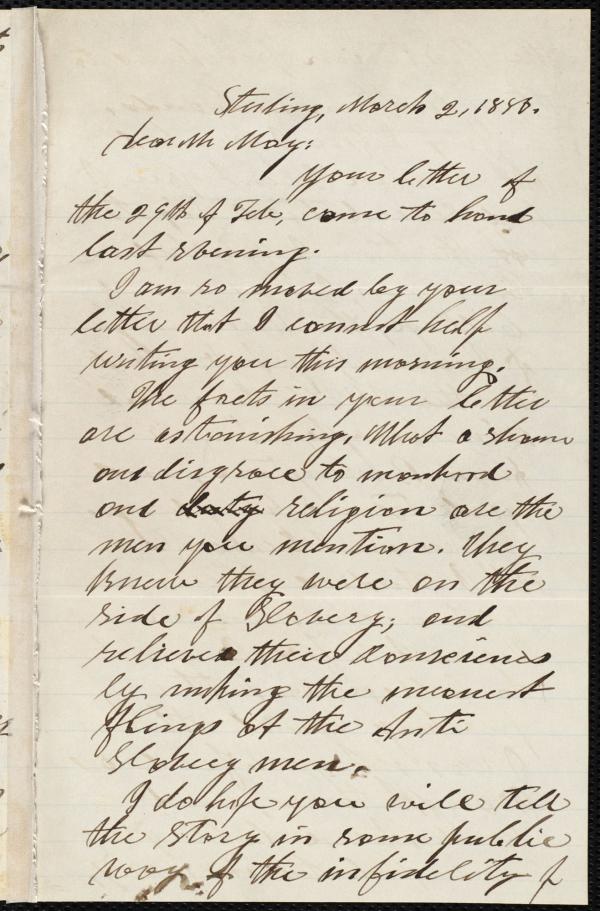 Sterling, March 2, 1880.
Dear Mr May:
Your letter of
the 29th of Feb, came to hand
last evening.
I am so moved by your
letter that I cannot help
writing you this morning.
The facts in your letter
are astonishing. What a shame
and disgrace to manhood
and duty religion are the
men you mention. They
knew they were on the
side of Slavery; and
relieved their consciences
by making the meanest
flings at the Anti
Slavery men.
I do hope you will tell
the story in some public
way of the infidelity of